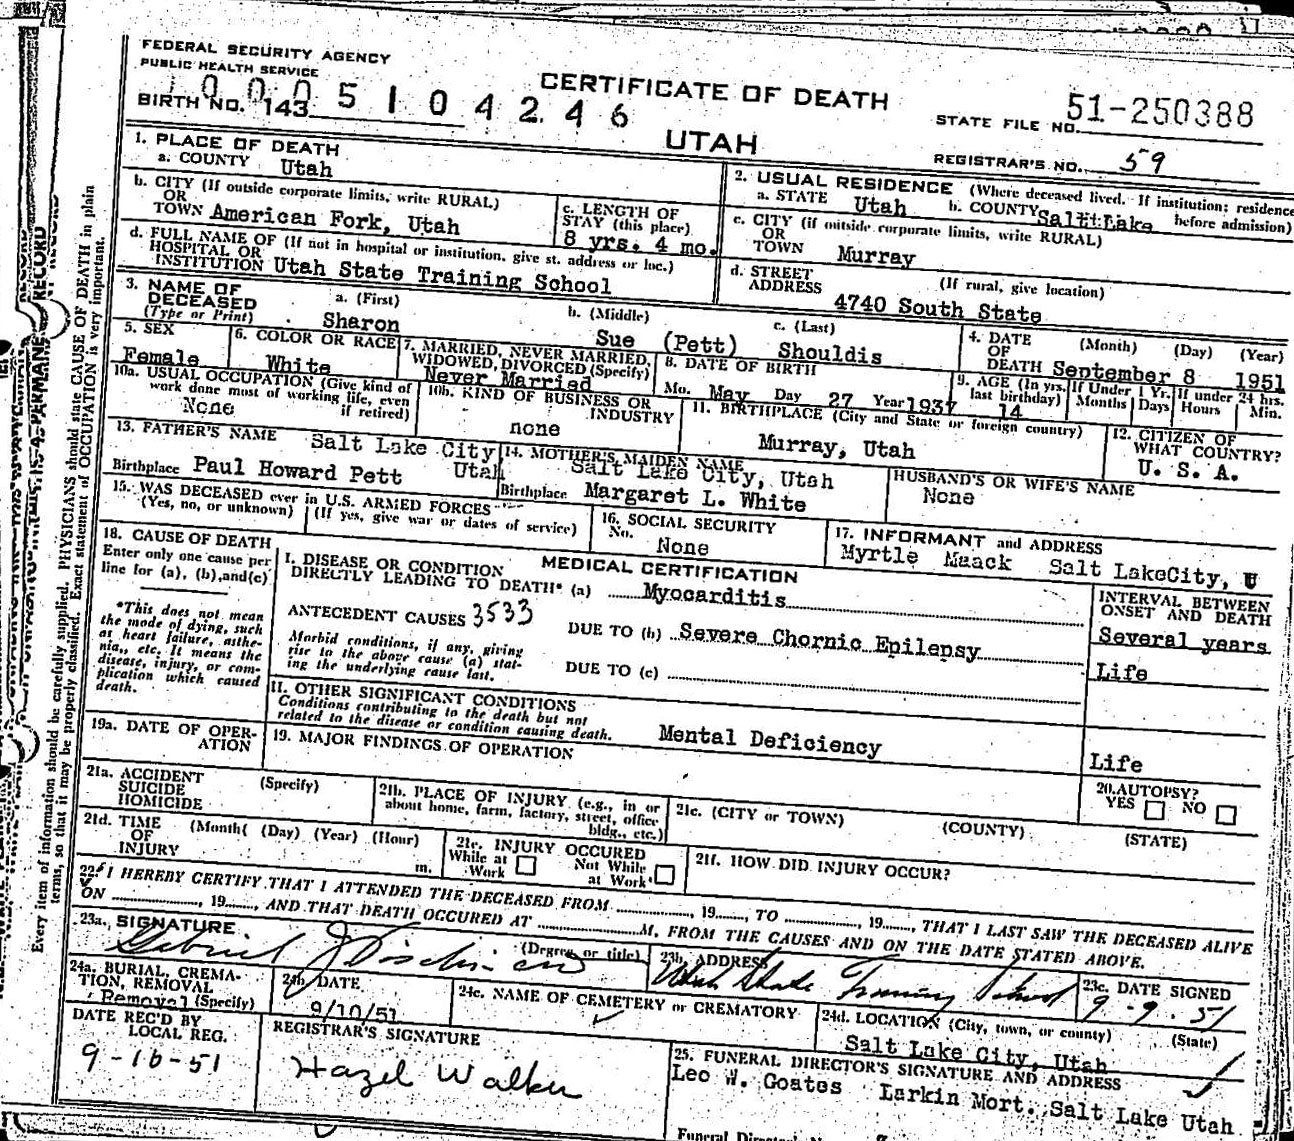 FEDERAL SECURITY AGENCY
PUBLIC HEALTH SERVICE
CERTIFICATE OF DEATH
UTAH
BIRTH NO. 143
1 0 0 0 5 1 0 4 2 4 6
STATE FILE NO. 51-250388
REGISTRAR'S NO. 59
1. PLACE OF DEATH
a. COUNTY Utah
b. CITY (If outside corporate limits, write RURAL)
OR
TOWN American Fork, Utah
c. LENGTH OF
STAY (this place)
8 yrs. 4 mo.
d. FULL NAME OF (If not in hospital or institution, give st. address or loc.)
HOSPITAL OR
INSTITUTION Utah State Training School
2. USUAL RESIDENCE (Where deceased lived. If institution; residence
before admission)
a. STATE Utah b. COUNTY Salt Lake
c. CITY (if outside corporate limits, write RURAL)
OR
TOWN Murray
d. STREET (If rural, give location)
ADDRESS 4740 South State
3. NAME OF
DECEASED
(Type or Print)
a. (First) b. (Middle) c. (Last)
Sharon Sue (Pett) Shouldis
4. DATE (Month) (Day) (Year)
OF
DEATH September 8 1951
5. SEX
Female
6. COLOR OR RACE
White
7. MARRIED, NEVER MARRIED,
WIDOWED, DIVORCED (Specify)
Never Married
8. DATE OF BIRTH
Mo. May Day 27 Year 1937
9. AGE (In yrs. last birthday)
14
If Under 1 Yr.
Months Days
If under 24 hrs.
Hours Min.
10a. USUAL OCCUPATION (Give kind of
work done most of working life, even
if retired)
None
10b. KIND OF BUSINESS OR
INDUSTRY
none
11. BIRTHPLACE (City and State or foreign country)
Murray, Utah
12. CITIZEN OF
WHAT COUNTRY?
U. S. A.
13. FATHER'S NAME Salt Lake City
Utah
Birthplace Paul Howard Pett
14. MOTHER'S MAIDEN NAME
Salt Lake City, Utah
Birthplace Margaret L. White
HUSBAND'S OR WIFE'S NAME
None
15. WAS DECEASED ever in U.S. ARMED FORCES
(Yes, no, or unknown) (If yes, give war or dates of service)
16. SOCIAL SECURITY
No. None
17. INFORMANT and ADDRESS
Myrtle Maack Salt LakeCity, U
18. CAUSE OF DEATH
Enter only one cause per
line for (a), (b),and(c)
*This does not mean
the mode of dying, such
as heart failure, asthe-
nia, etc. It means the
disease, injury, or com-
plication which caused
death.
MEDICAL CERTIFICATION
I. DISEASE OR CONDITION
DIRECTLY LEADING TO DEATH* (a) Myocarditis
ANTECEDENT CAUSES 3533
DUE TO (b) Severe Chornic Epilepsy
Morbid conditions, if any, giving
rise to the above cause (a) stat-
ing the underlying cause last.
DUE TO (c)
II. OTHER SIGNIFICANT CONDITIONS
Conditions contributing to the death but not
related to the disease or condition causing death.
Mental Deficiency
INTERVAL BETWEEN
ONSET AND DEATH
Several years
Life
Life
19a. DATE OF OPER-
ATION
19. MAJOR FINDINGS OF OPERATION
20. AUTOPSY?
YES NO
21a. ACCIDENT
SUICIDE
HOMICIDE
(Specify)
21b. PLACE OF INJURY (e.g., in or
about home, farm, factory, street, office
bldg., etc.)
21c. (CITY or TOWN) (COUNTY) (STATE)
21d. TIME
OF
INJURY
(Month( (Day) (Year) (Hour)
m.
21e. INJURY OCCURED
While at
Work
Not While
at Work
21f. HOW DID INJURY OCCUR?
22. I HEREBY CERTIFY THAT I ATTENDED THE DECEASED FROM , 19 , TO , 19 , THAT I LAST SAW THE DECEASED ALIVE
ON , 19 , AND THAT DEATH OCCURED AT M. FROM THE CAUSES AND ON THE DATE STATED ABOVE.
23a. SIGNATURE (Degree or title)
23b. ADDRESS
Utah State Training School
23c. DATE SIGNED
9-9-51
24a. BURIAL, CREMA-
TION, REMOVAL
Removal (Specify)
24b. DATE
9/10/51
24c. NAME OF CEMETERY or CREMATORY
24d. LOCATION (City, town, or county) (State)
Salt Lake City, Utah
DATE REC'D BY
LOCAL REG.
9-10-51
REGISTRAR'S SIGNATURE
Hazel Walker
25. FUNERAL DIRECTOR'S SIGNATURE AND ADDRESS
Leo W. Goates Larkin Mort. Salt Lake Utah
Every item of information should be carefully supplied. PHYSICIANS should state CAUSE OF DEATH in plain
terms, so that it may be properly classified. Exact statement of OCCUPATION is very important.